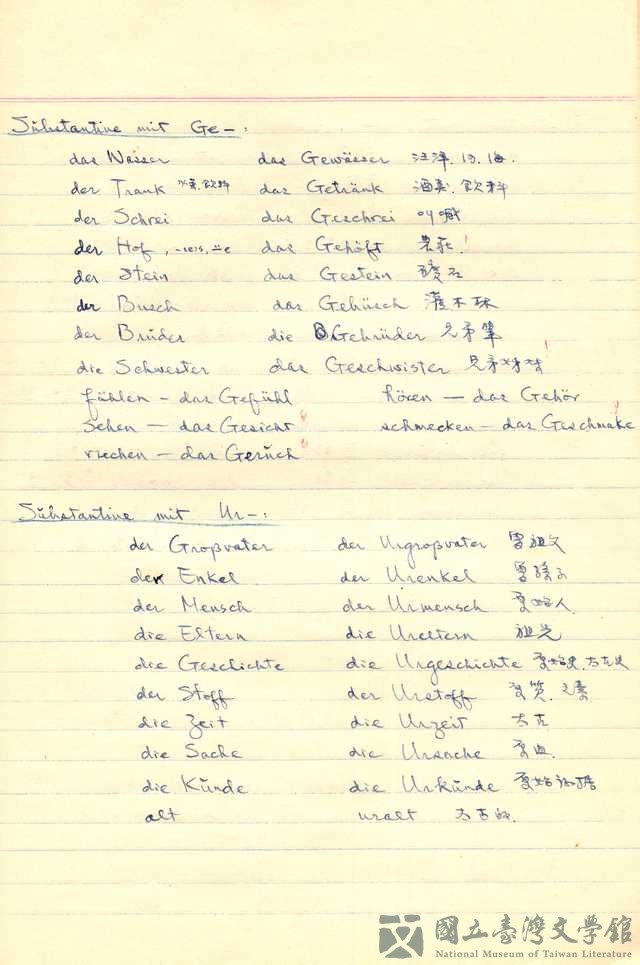 Substantive mit Ge-:
das Wasser das Gewässer 汪洋. 河. 海.
der Trank 水黃.飲料 das Getränk 酒類. 飲料
der Schrei das Geschrei 叫喊
der Hof, -(e)s, ⸚e das Gehöft 農莊!
der Stein das Gestein 礦石
der Busch das Gebüsch 灌木林
der Bruder die Gebrüder 兄弟輩
die Schwester das Geschwister 兄弟姊妹!
fühlen – das Gefühl hören – das Gehör
sehen – das Gesicht! schmecken – das Geschmake!
riechen – das Geruch!
Substantive mit Ur-:
der Großvater der Urgroßvater 曾祖父
der Enkel der Urenkel 曾孫子
der Mensch der Urmensch 原始人
die Eltern die Ureltern 祖先
die Geschichte die Urgeschichte 原始史. 太古史
der Stoff der Urstoff 原質. 元素
die Zeit die Urzeit 太古
die Sache die Ursache 原因.
die Kunde die Urkunde 原始
alt uralt 太古的.
國立臺灣文學館
National Museum of Taiwan Literature